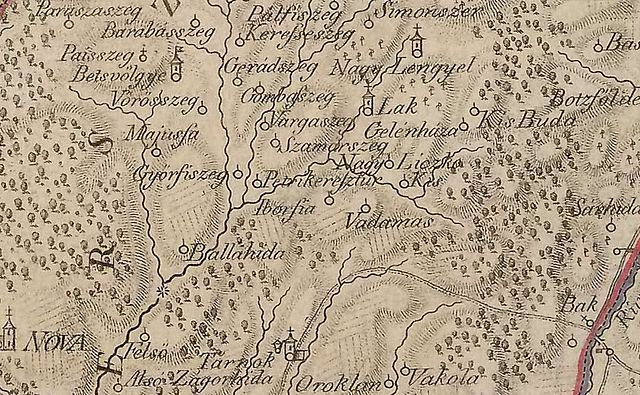 Paraszaszeg
Barabásszeg
Pálfiszeg
Kerefseszeg
Simonszer
Paisszeg
Beisvölgye
Geradszeg
Nagy Lengyel
Vörösszeg
Gombószeg
Lak
Botzfölde
Majusfa
Vargaszeg
Gelenháza
Kis Buda
Szamárszeg
Györfiszeg
Nagy
Liczkó
Petrikeresztur
Kis
Iborfia
Vadamas
Ballahida
Bak
NOVA
Felső
Tarnok
Alsó Zágorhida
Oroklan
Vakola
S
R
E